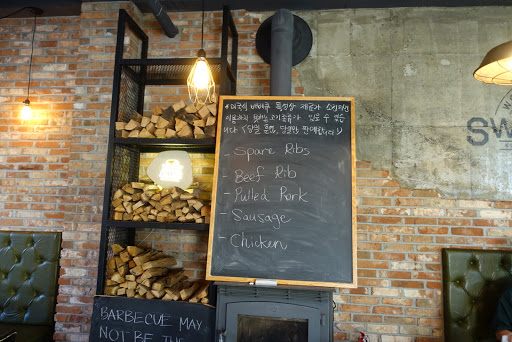 * 미국식 바베큐 특성상 제공가 소진되면
이용하지 못하는 고기종류가 있을 수 있습
니다. (당일 훈연, 당일만 판매합니다!)
- Spare Ribs
- Beef Rib
- Pulled Pork
- Sausage
- Chicken
BARBECUE MAY
NOT BE THE
SW